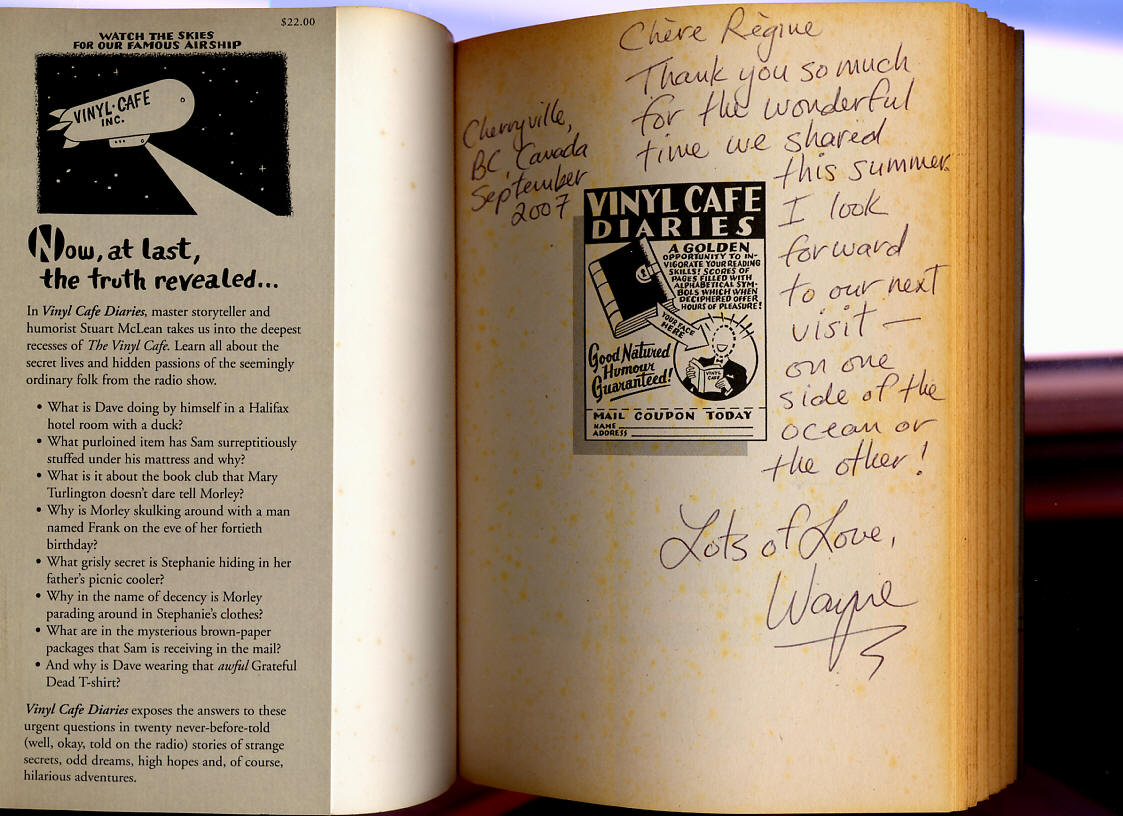 $22.00
WATCH THE SKIES
FOR OUR FAMOUS AIRSHIP
VINYL·CAFE
INC.
Now, at last,
the truth revealed...
In Vinyl Cafe Diaries, master storyteller and
humorist Stuart McLean takes us into the deepest
recesses of The Vinyl Cafe. Learn all about the
secret lives and hidden passions of the seemingly
ordinary folk from the radio show.
• What is Dave doing by himself in a Halifax
hotel room with a duck?
• What purloined item has Sam surreptitiously
stuffed under his mattress and why?
• What is it about the book club that Mary
Turlington doesn't dare tell Morley?
• Why is Morley skulking around with a man
named Frank on the eve of her fortieth
birthday?
• What grisly secret is Stephanie hiding in her
father's picnic cooler?
• Why in the name of decency is Morley
parading around in Stephanie's clothes?
• What are in the mysterious brown-paper
packages that Sam is receiving in the mail?
• And why is Dave wearing that awful Grateful
Dead T-shirt?
Vinyl Cafe Diaries exposes the answers to these
urgent questions in twenty never-before-told
(well, okay, told on the radio) stories of strange
secrets, odd dreams, high hopes and, of course,
hilarious adventures.
Cherryville,
BC, Canada
September
2007
Chère Règine
Thank you so much
for the wonderful
time we shared
this summer.
I look
forward
to our next
visit —
on one
side of the
ocean or
the other!
Lots of Love,
Wayne
VINYL CAFE
DIARIES
A GOLDEN
OPPORTUNITY TO IN-
VIGORATE YOUR READING
SKILLS! SCORES OF
PAGES FILLED WITH
ALPHABETICAL SYM-
BOLS WHICH WHEN
DECIPHERED OFFER
HOURS OF PLEASURE!
YOUR FACE
HERE
Good Natured
Humour
Guaranteed!
VINYL
CAFE
MAIL COUPON TODAY
NAME
ADDRESS